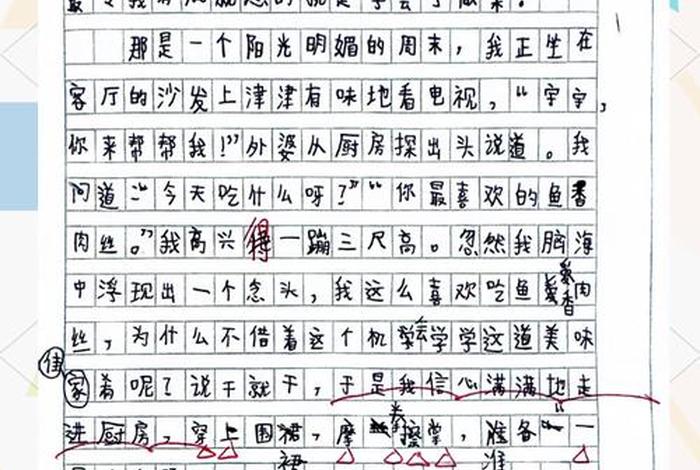 那是一个阳光明媚的周末，我正坐在
客厅的沙发上津津有味地看电视，“宇宇，
你来帮帮我！”外婆从厨房探出头说道。我
问道：“今天吃什么呀？”“你最喜欢的鱼香
肉丝。”我高兴得一蹦三尺高。忽然我脑海
中浮现出一个念头，我这么喜欢吃鱼香肉
丝，为什么不借着这个机会学学这道美味
佳肴呢？说干就干，于是我信心满满地走
进厨房，穿上围裙，摩拳擦掌，准备“一